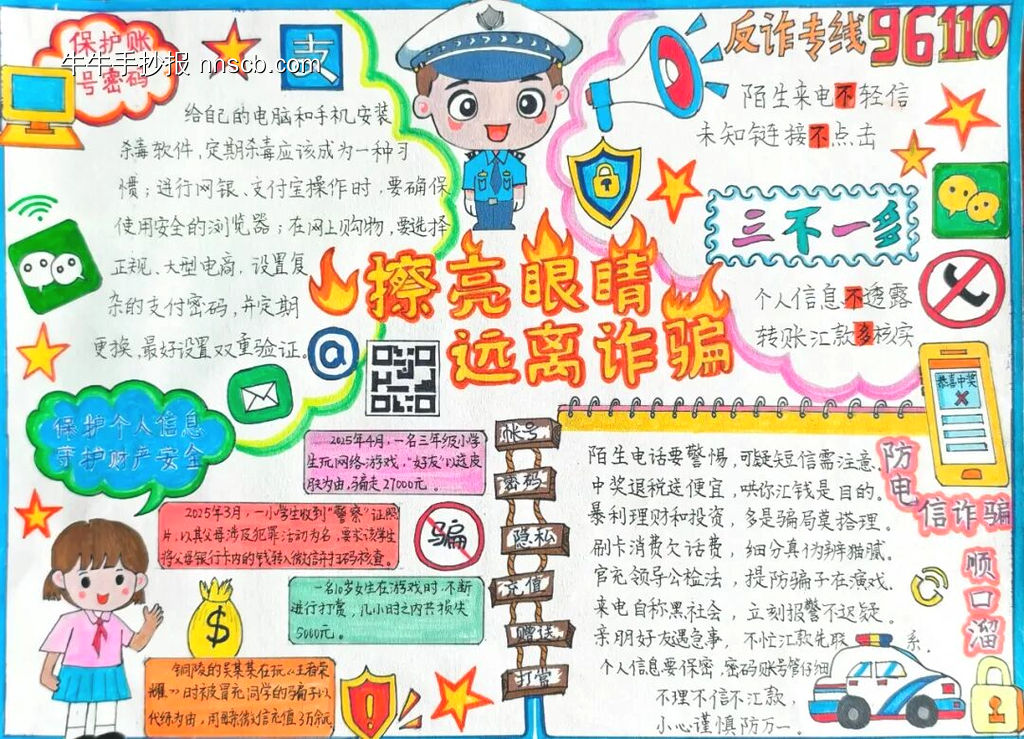 保护账
号密码
牛牛手抄报 nnscb.com
支
给自己的电脑和手机安装
杀毒软件,定期杀毒应该成为一种习
惯;进行网银、支付宝操作时,要确保
使用安全的浏览器;在网上购物,要选择
正规、大型电商,设置复
杂的支付密码,并定期
更换,最好设置双重验证。
@
反诈专线96110
陌生来电不轻信
未知链接不点击
三不一多
个人信息不透露
转账汇款多核实
擦亮眼睛
远离诈骗
恭喜中奖
保护个人信息
守护财产安全
2025年4月,一名三年级小学
生玩网络游戏,"好友"以送皮
肤为由,骗走27000元。
2025年3月,一小学生收到"警察"证照
片,以其父母涉及犯罪活动为名,要求该学生
将父母银行卡内的钱转入微信并扫码核查。
骗
一名10岁女生在游戏时,不断
进行打赏,几小时之内共损失
5000元。
$
铜陵的吴某某在玩《王者荣
耀》时被冒充同学的骗子以
代练为由,用微信充值3万余元
帐号
密码
隐私
充值
赠送
打赏
陌生电话要警惕,可疑短信需注意。
中奖退税送便宜,哄你汇钱是目的。
暴利理财和投资,多是骗局莫搭理。
刷卡消费欠话费,细分真伪辨猫腻。
官充领导公检法,提防骗子在演戏.
来电自称黑社会,立刻报警不迟疑.
亲朋好友遇急事,不忙汇款先联系.
个人信息要保密,密码账号管仔细
不理不信不汇款,
小心谨慎防万一。
防电信诈骗
顺口溜